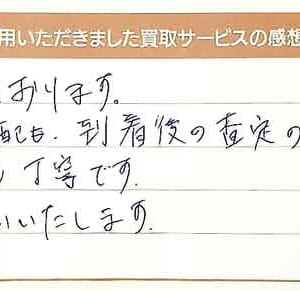 用いただきました買取サービスの感想
おります。
配も、到着後の査定の
丁寧です。
いいたします。